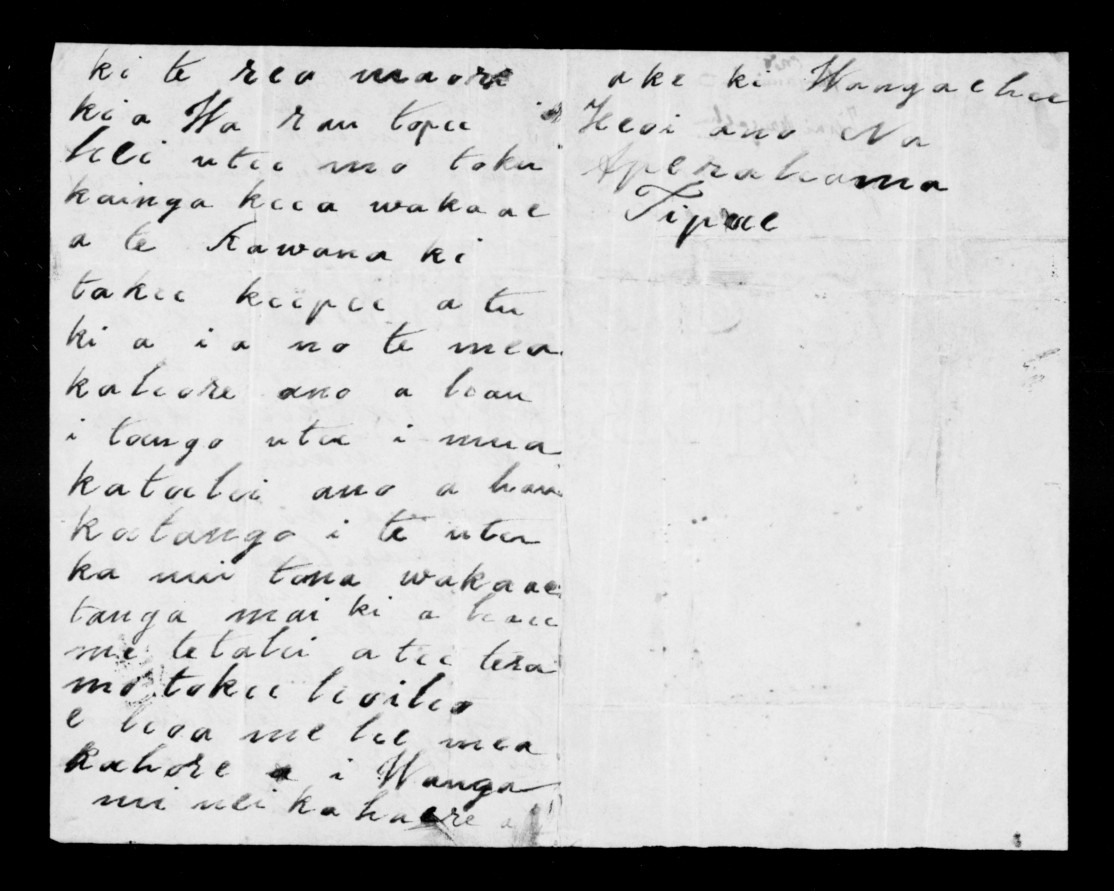 ki te reo maori
kia Wa rau topu
hei utu mo toku
kainga kua wakaae
a te Kawana ki
taku kupu atu
ki a ia no te mea
kahore ano a hau
i tango utu i mua
katahi ano a hau
katango i te utu
ka nui tona wakaae
tanga mai ki a hau
me tetahi atu tera
mo toku hoiho
e hoa me he mea
kahore a i Wanga
nui nei ka haere a
ake ki Wangaehu
Heoi ano Na
Aperahama
Tipae